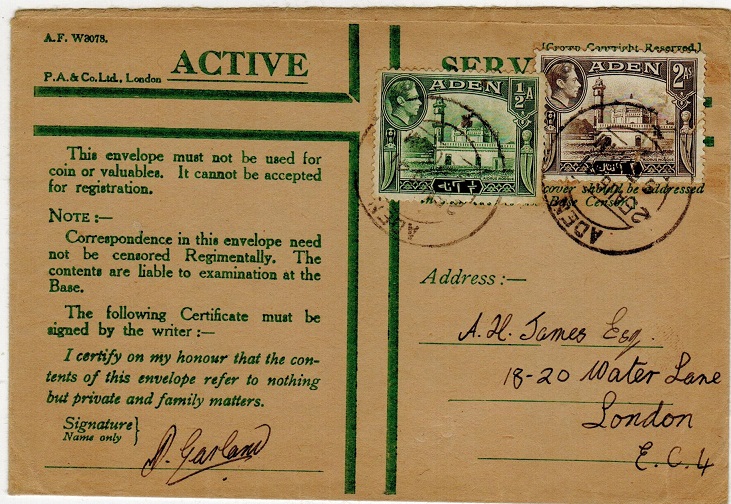 A.F. W3078.
P.A.& Co. Ltd., London
ACTIVE
SERV
[Crown Copyright Reserved.]
ADEN
½A
ADEN
2AS
This envelope must not be used for
coin or valuables. It cannot be accepted
for registration.
NOTE :—
Correspondence in this envelope need
not be censored Regimentally. The
contents are liable to examination at the
Base.
The following Certificate must be
signed by the writer :—
I certify on my honour that the con-
tents of this envelope refer to nothing
but private and family matters.
Signature
Name only
D. Garland
cover should be addressed
Base Censor.
ADEN
ADEN
Address :—
A. H. James Esq.
18-20 Water Lane
London
E.C.4